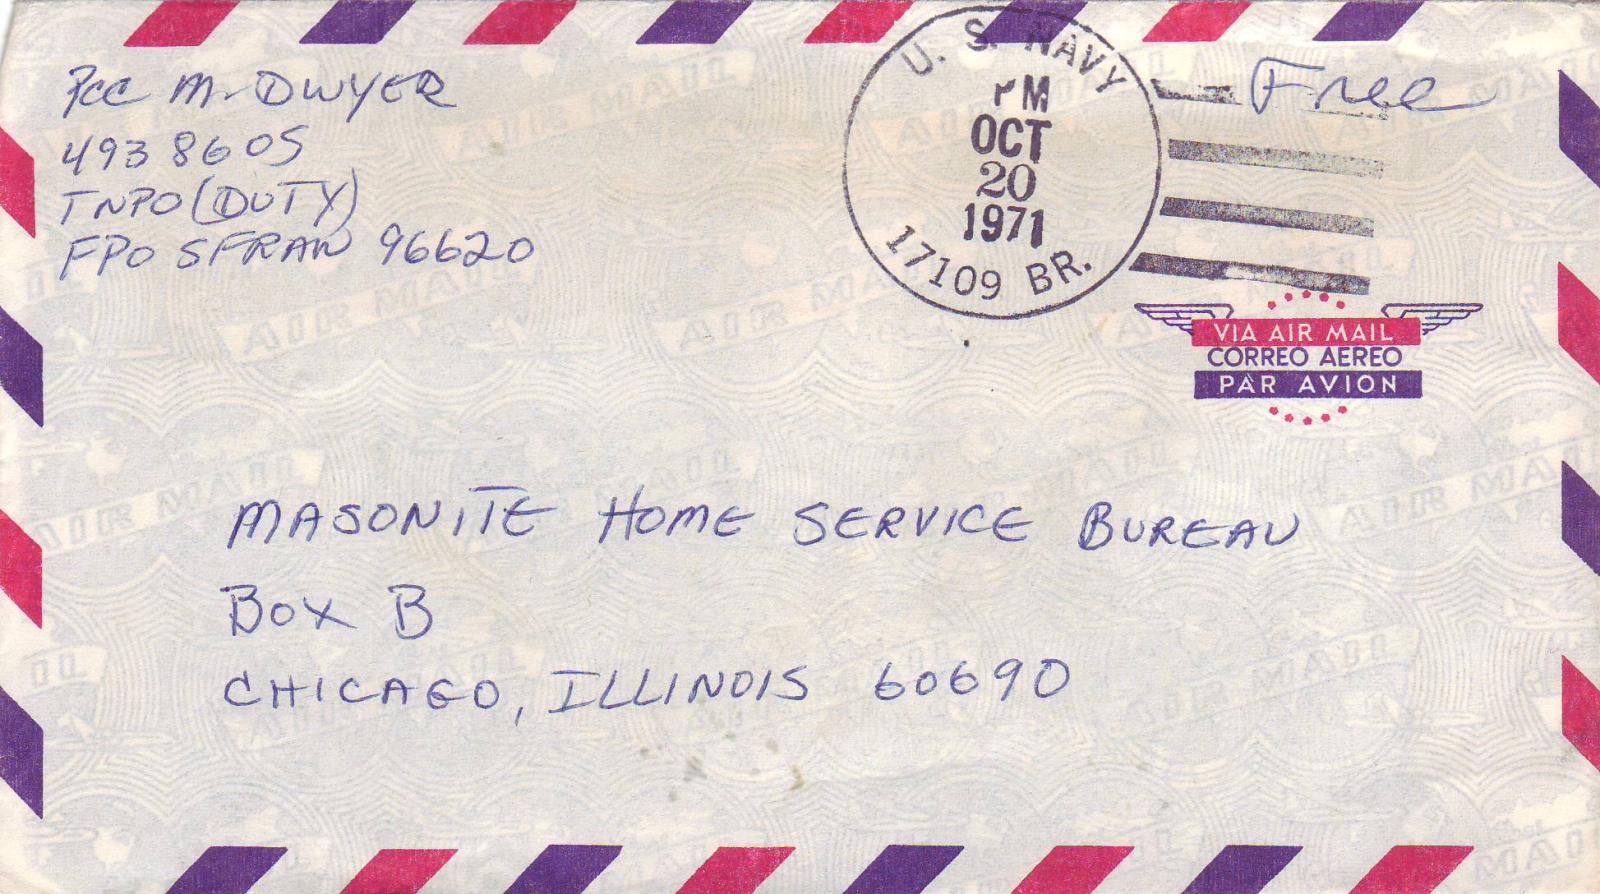 PCC M. DWYER
493 8605
TNPO (DUTY)
FPO SFRAN 96620
U. S. NAVY
PM
OCT
20
1971
17109 BR.
Free
VIA AIR MAIL
CORREO AEREO
PAR AVION
MASONITE HOME SERVICE BUREAU
BOX B
CHICAGO, ILLINOIS 60690